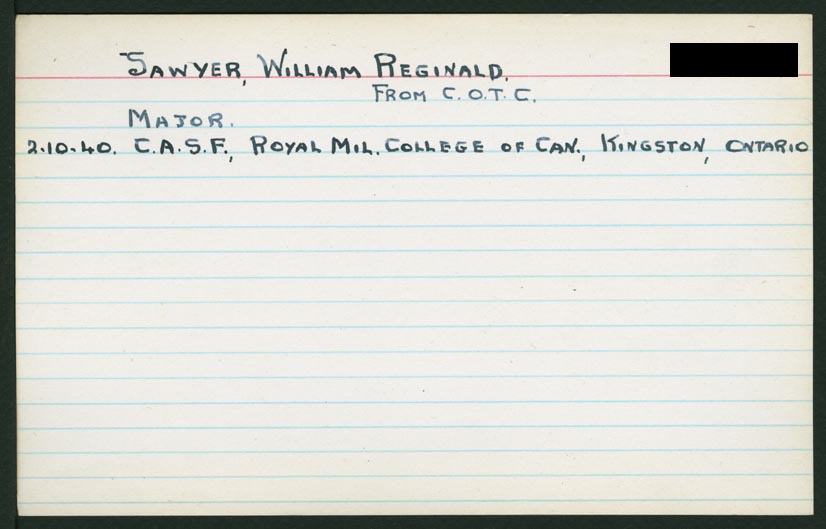 SAWYER, WILLIAM REGINALD.
FROM C.O.T.C.
MAJOR.
2.10.40. C.A.S.F., ROYAL MIL. COLLEGE OF CAN., KINGSTON, ONTARIO